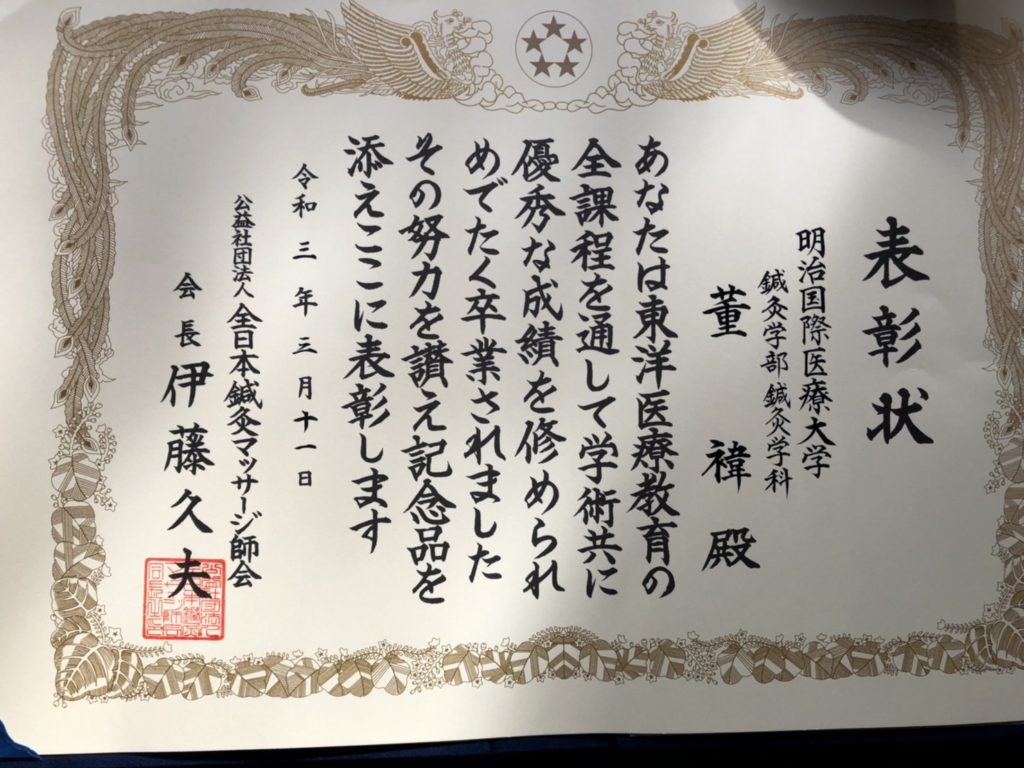 表彰状
明治国際医療大学
鍼灸学部 鍼灸学科
董 褘 殿
あなたは東洋医療教育の
全課程を通して学術共に
優秀な成績を修められ
めでたく卒業されました
その努力を讃え記念品を
添えここに表彰します
令和三年三月十一日
公益社団法人 全日本鍼灸マッサージ師会
会長 伊藤久夫